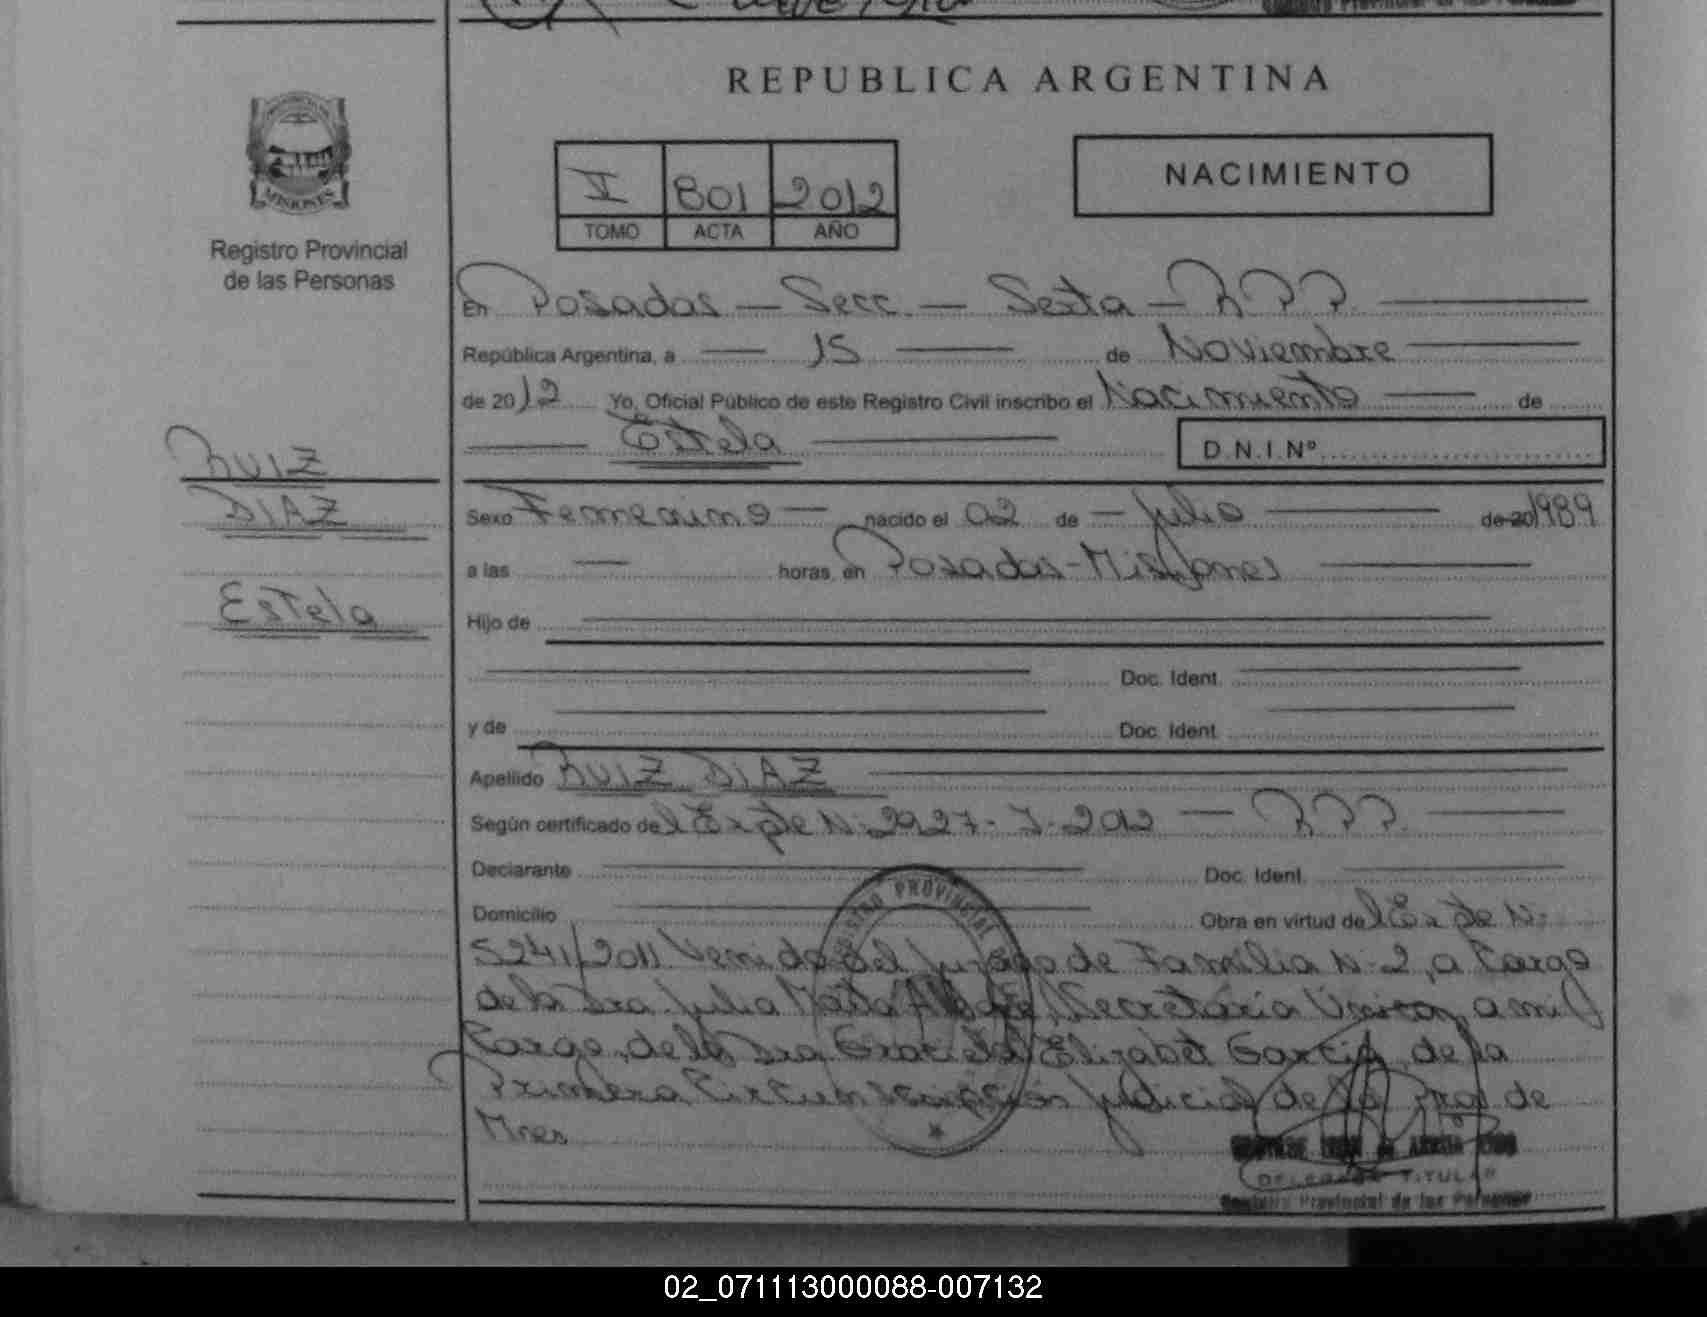 REPUBLICA ARGENTINA
MISIONES
Registro Provincial
de las Personas
V 801 2012
TOMO ACTA AÑO
NACIMIENTO
En Posadas — Secc. — Sexta — R.P.P.
República Argentina, a — 15 — de Noviembre
de 2012 Yo, Oficial Público de este Registro Civil inscribo el Nacimiento — de
Estela
D.N.I.Nº
RUIZ
DIAZ
Estela
Sexo Femenino — nacido el 02 de — Julio — de 20 1989
a las — horas, en Posadas - Misiones
Hijo de
Doc. Ident.
y de Doc. Ident.
Apellido RUIZ DIAZ
Según certificado del Expte N: 2927- J-2012 — R.P.P.
Declarante Doc. Ident.
Domicilio Obra en virtud del Expte N:
5241/2011 Venido del Juzgado de Familia N-2, a Cargo
de la Dra. Julia Secretaria Unica, a mi
Cargo, de la Dra Graciela Elizabet Garcia, de la
Primera Circunscripción Judicial de la Pcia. de
Mnes
PROVINCIAL
TITULAR
Registro Provincial de las Personas
02_071113000088-007132